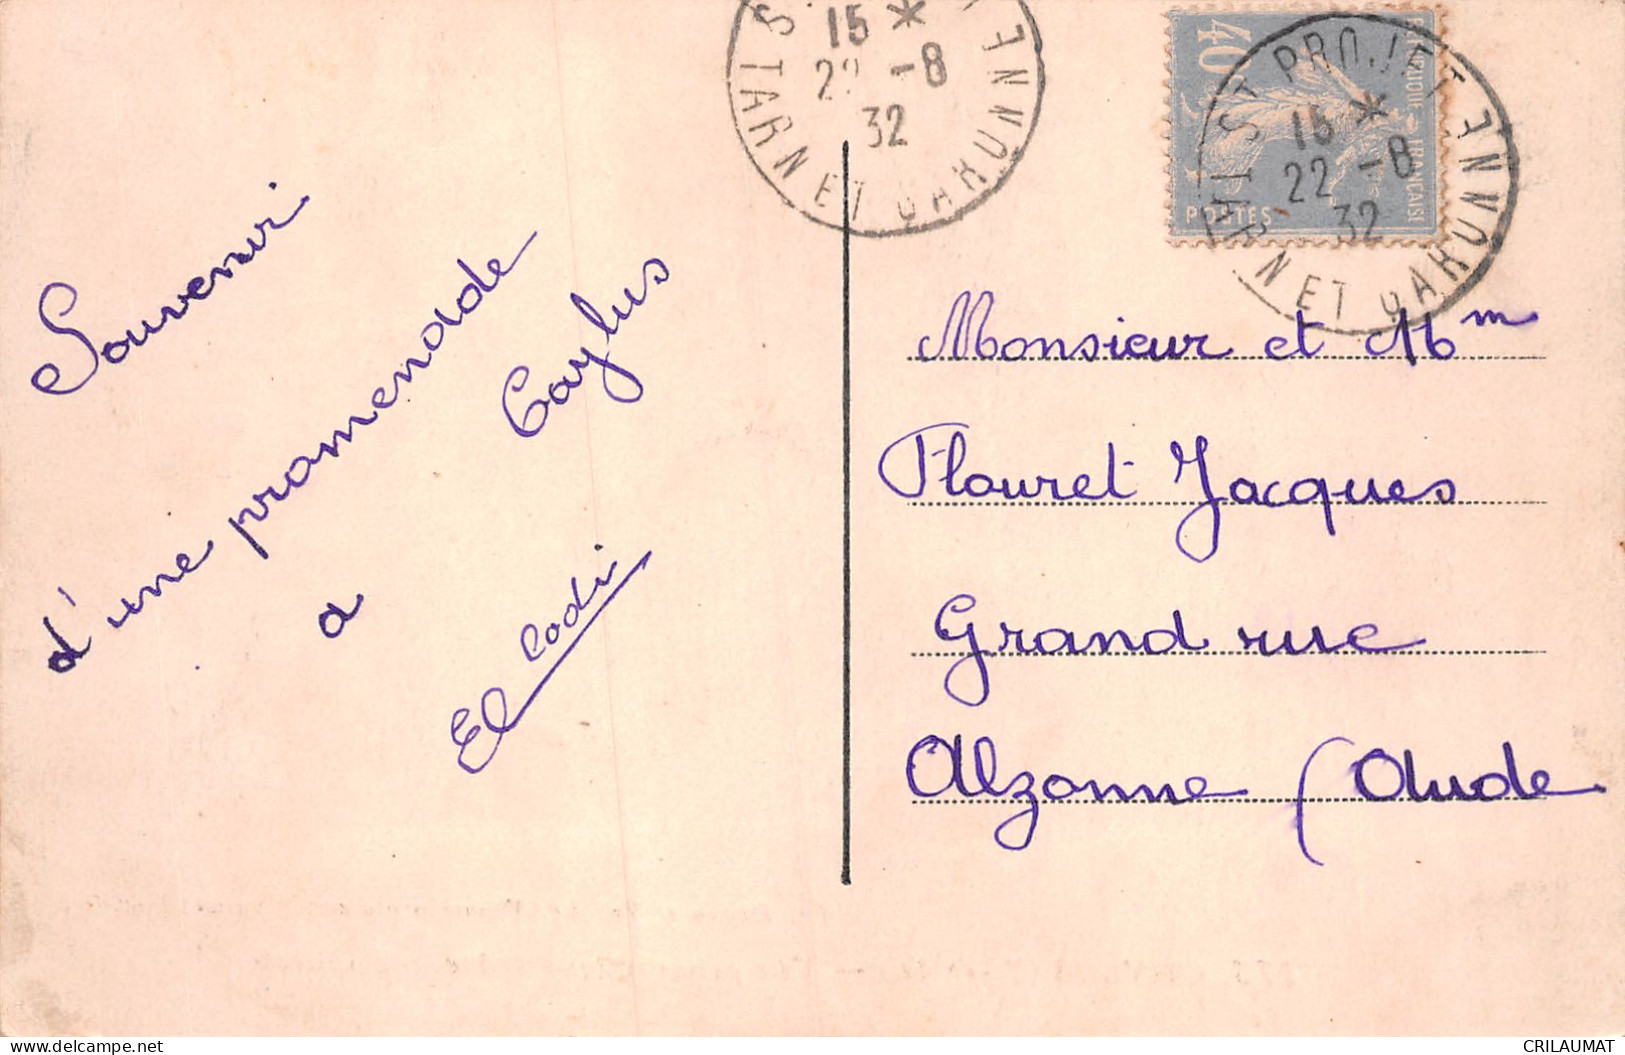 Souvenir
d'une promenade
a Caylus
El Cadi
15 *
22 -8
32
TARN ET GARONNE
40c
REPUBLIQUE FRANÇAISE
POSTES
ST PROJET
15 *
22 -8
32
TARN ET GARONNE
Monsieur et Mm
Flouret Jacques
Grand rue
Alzonne (Aude
delcampe.net
CRILAUMAT